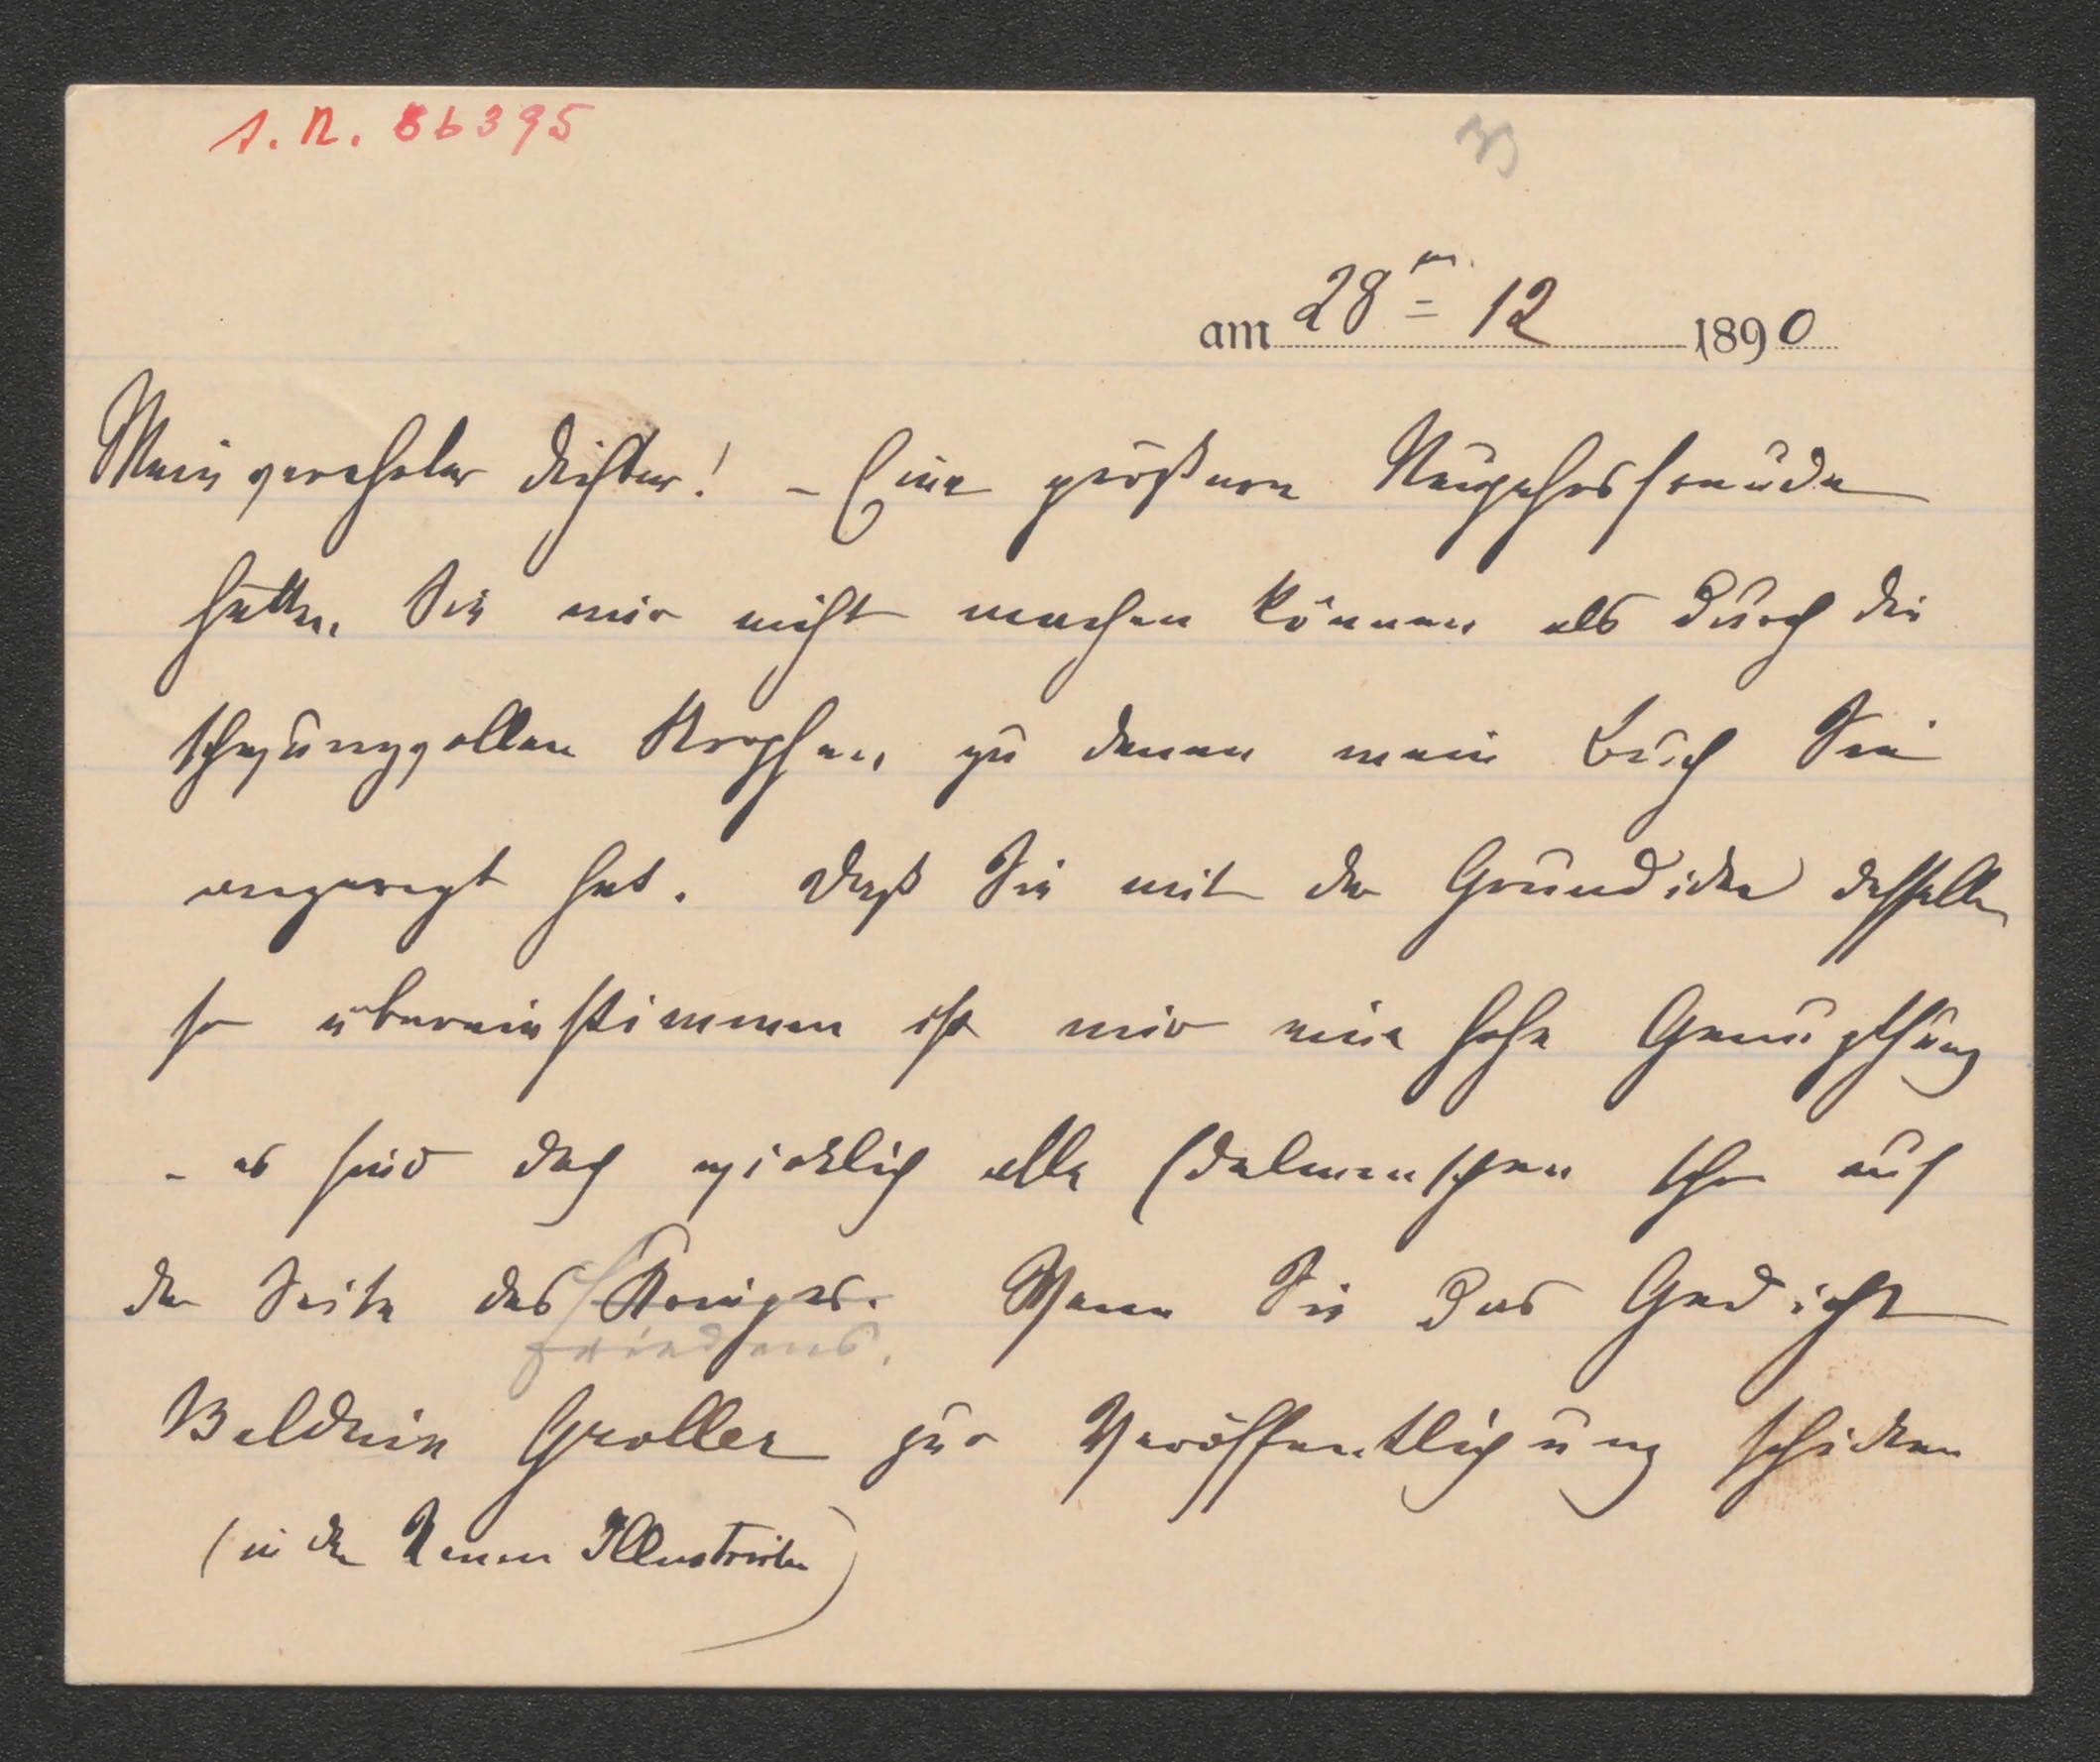 I. N. 56395
am 28ten 12 1890
Mein verehrter Dichter! – Eine größere Neujahrsfreude
hätten Sie mir nicht machen können als durch die
schwungvollen Strophen, zu denen mein Buch Sie
angeregt hat. Daß Sie mit der Grundidee desselben
so übereinstimmen ist mir eine hohe Genugthuung
– es sind doch wirklich alle Edelmenschen schon auf
der Seite des Krieges. Wenn Sie das Gedicht
Friedens.
Balduin Groller zur Veröffentlichung schicken
(in der Neuen Illustrirten)